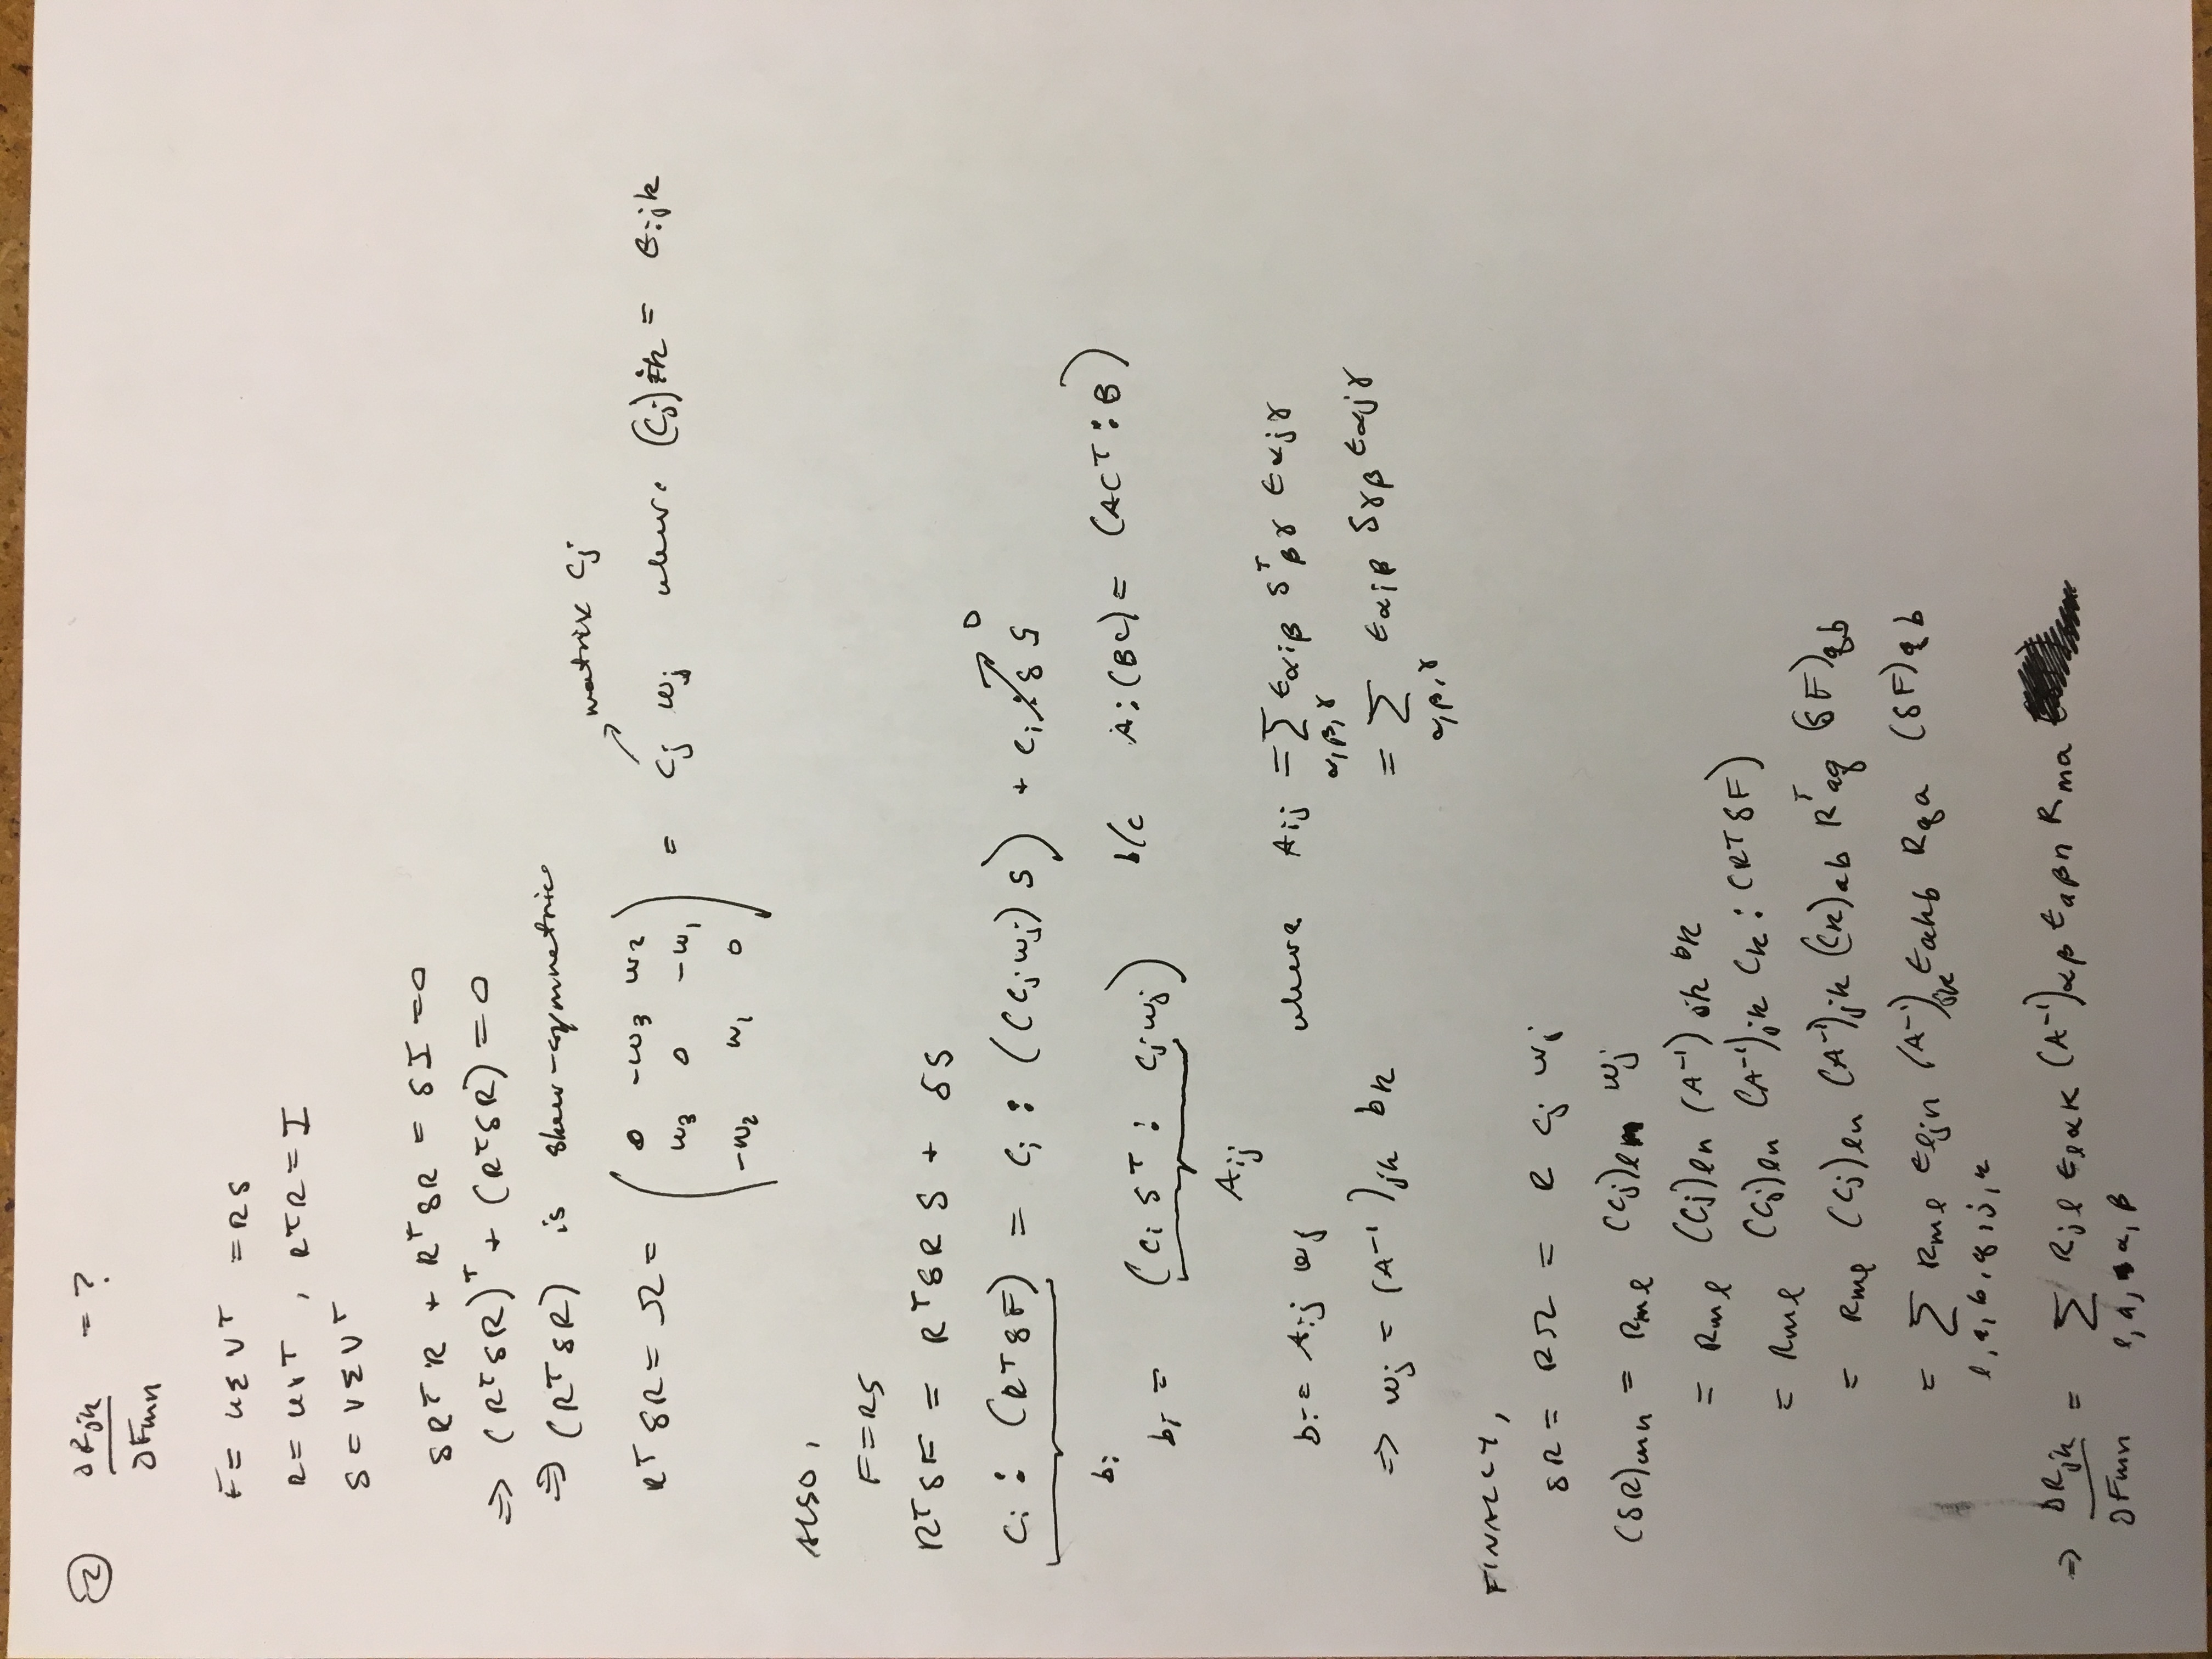 ② ∂Rjk / ∂Fmn = ?
F = UΣV^T = RS
R = UV^T , R^T R = I
S = VΣV^T
δR^T R + R^T δR = δI = 0
⇒ (R^T δR)^T + (R^T δR) = 0
⇒ (R^T δR) is skew-symmetric
matrix Cj
R^T δR = Ω = ( 0 -w3 w2
w3 0 -w1
-w2 w1 0 ) = Cj wj where (Cj)ik = εijk
ALSO,
F = RS
R^T δF = R^T δR S + δS
Ci : (R^T δF) = Ci : ((Cj wj) S) + Ci : δS → 0
bi
bi = (Ci S^T : Cj wj) b/c A:(BC) = (AC^T : B)
Aij
bi = Aij wj where Aij = Σ_{α,β,γ} εαiβ S^T_βγ εαjγ
⇒ wj = (A^-1)jk bk = Σ_{α,β,γ} εαiβ Sγβ εαjγ
FINALLY,
δR = RΩ = R Cj wj
(δR)mn = Rml (Cj)ln wj
= Rml (Cj)ln (A^-1)jk bk
= Rml (Cj)ln (A^-1)jk Ck : (R^T δF)
= Rml (Cj)ln (A^-1)jk (Ck)ab R^T_aq (δF)qb
= Σ_{l,a,b,q,j,k} Rml εljn (A^-1)jk εakb Rqa (δF)qb
⇒ ∂Rjk / ∂Fmn = Σ_{l,a,α,β} Rjl εlαk (A^-1)αβ εaβn Rma